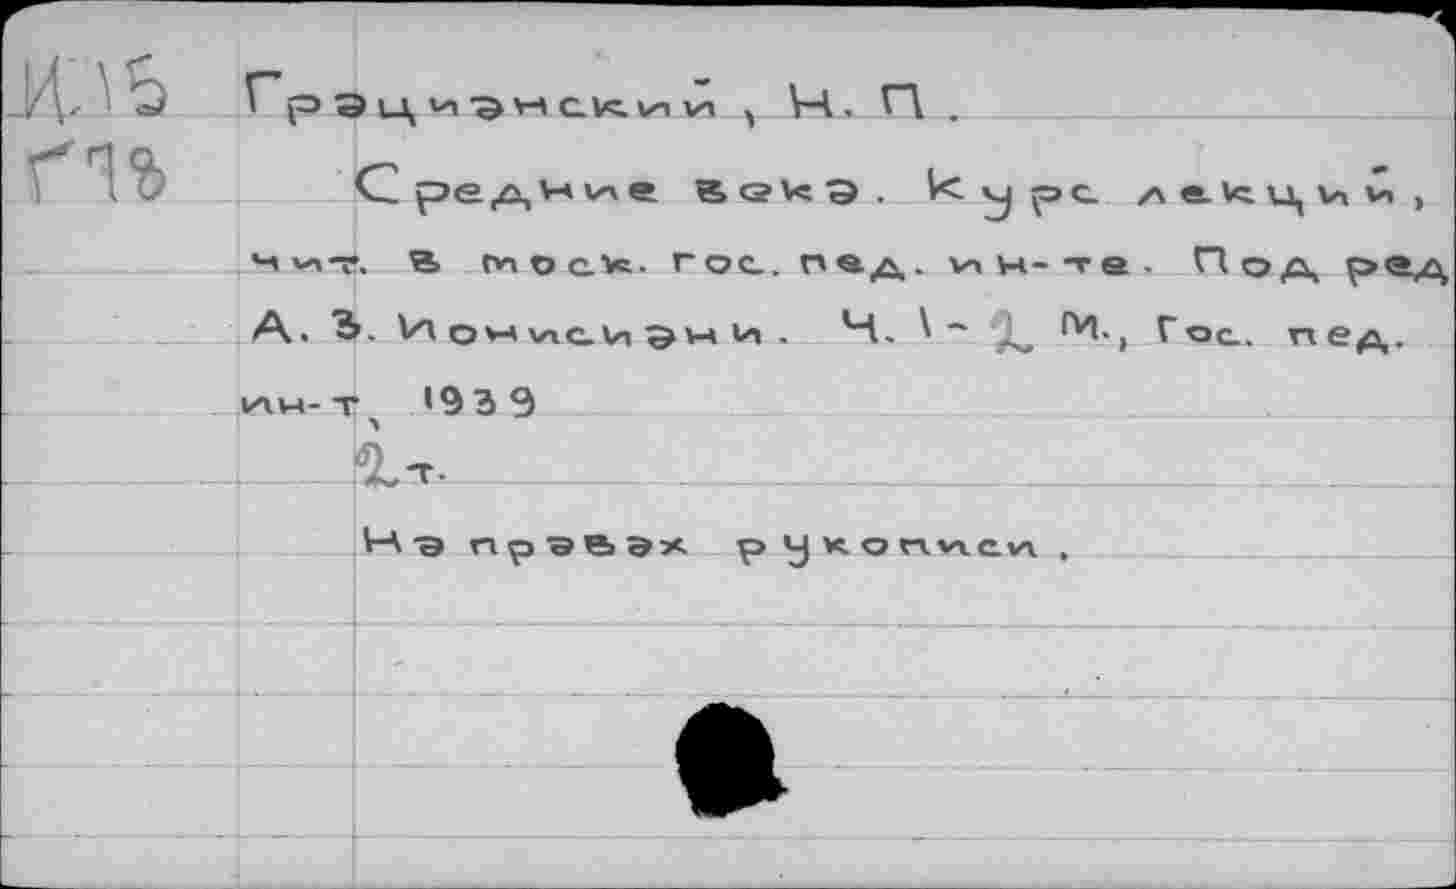 И15 Грацианский, Н. П.
Г78 Средние века. Курс лекций,
чит. в моск. гос. пед. ин-те. Под ред
А. З. Ионисиани. Ч. 1-2 М., Гос. пед.
ин-т, 1939
2 т.
На правах рукописи.